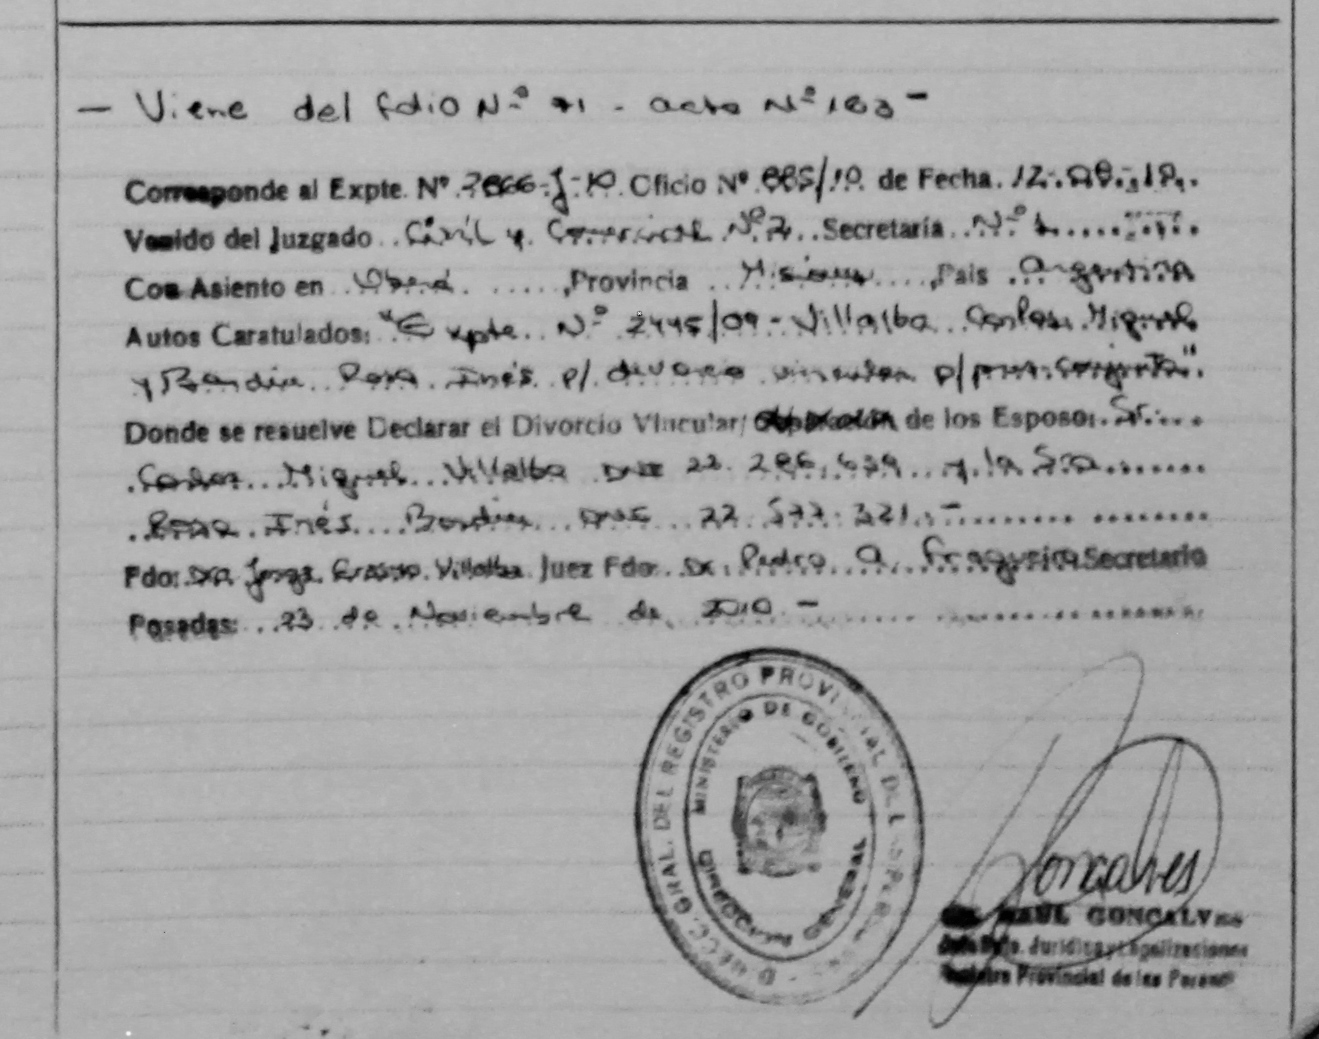 — Viene del folio Nº 71 - acta Nº 183 —
Corresponde al Expte. Nº 7866-J-10 Oficio Nº 885/10 de Fecha. 12-08-10.
Venido del Juzgado Civil y Comercial Nº 2 Secretaría Nº 1
Con Asiento en Oberá, Provincia Misiones, País Argentina
Autos Caratulados: "Expte. Nº 2445/09 - Villalba Carlos Miguel
y Bondin Rosa Inés p/ divorcio vincular p/ conjunta".
Donde se resuelve Declarar el Divorcio Vincular/ de los Esposo: Sr.
Carlos Miguel Villalba DNI 22.286.639 y la Sra
Rosa Inés DNI 22.577.321.-
Fdo: Jorge Erasmo Villalba Juez Fdo. Dr. Pedro A. Fragueiro Secretario
Posadas: 23 de Noviembre de 2010 —
DIRECC. GRAL. DEL REGISTRO PROVINCIAL DE LAS PERSONAS
MINISTERIO DE GOBIERNO
DIRECCION GENERAL
Goncalves
RAUL GONCALVES
Jurídica y Legalizaciones
Registro Provincial de las Personas